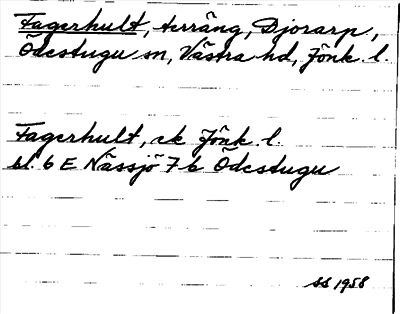 Fagerhult, terräng, Djorarp,
Ödestugu sn, Västra hd, Jönk. l.
Fagerhult, ek Jönk. l.
bl. 6 E Nässjö 7 b Ödestugu
SS 1958